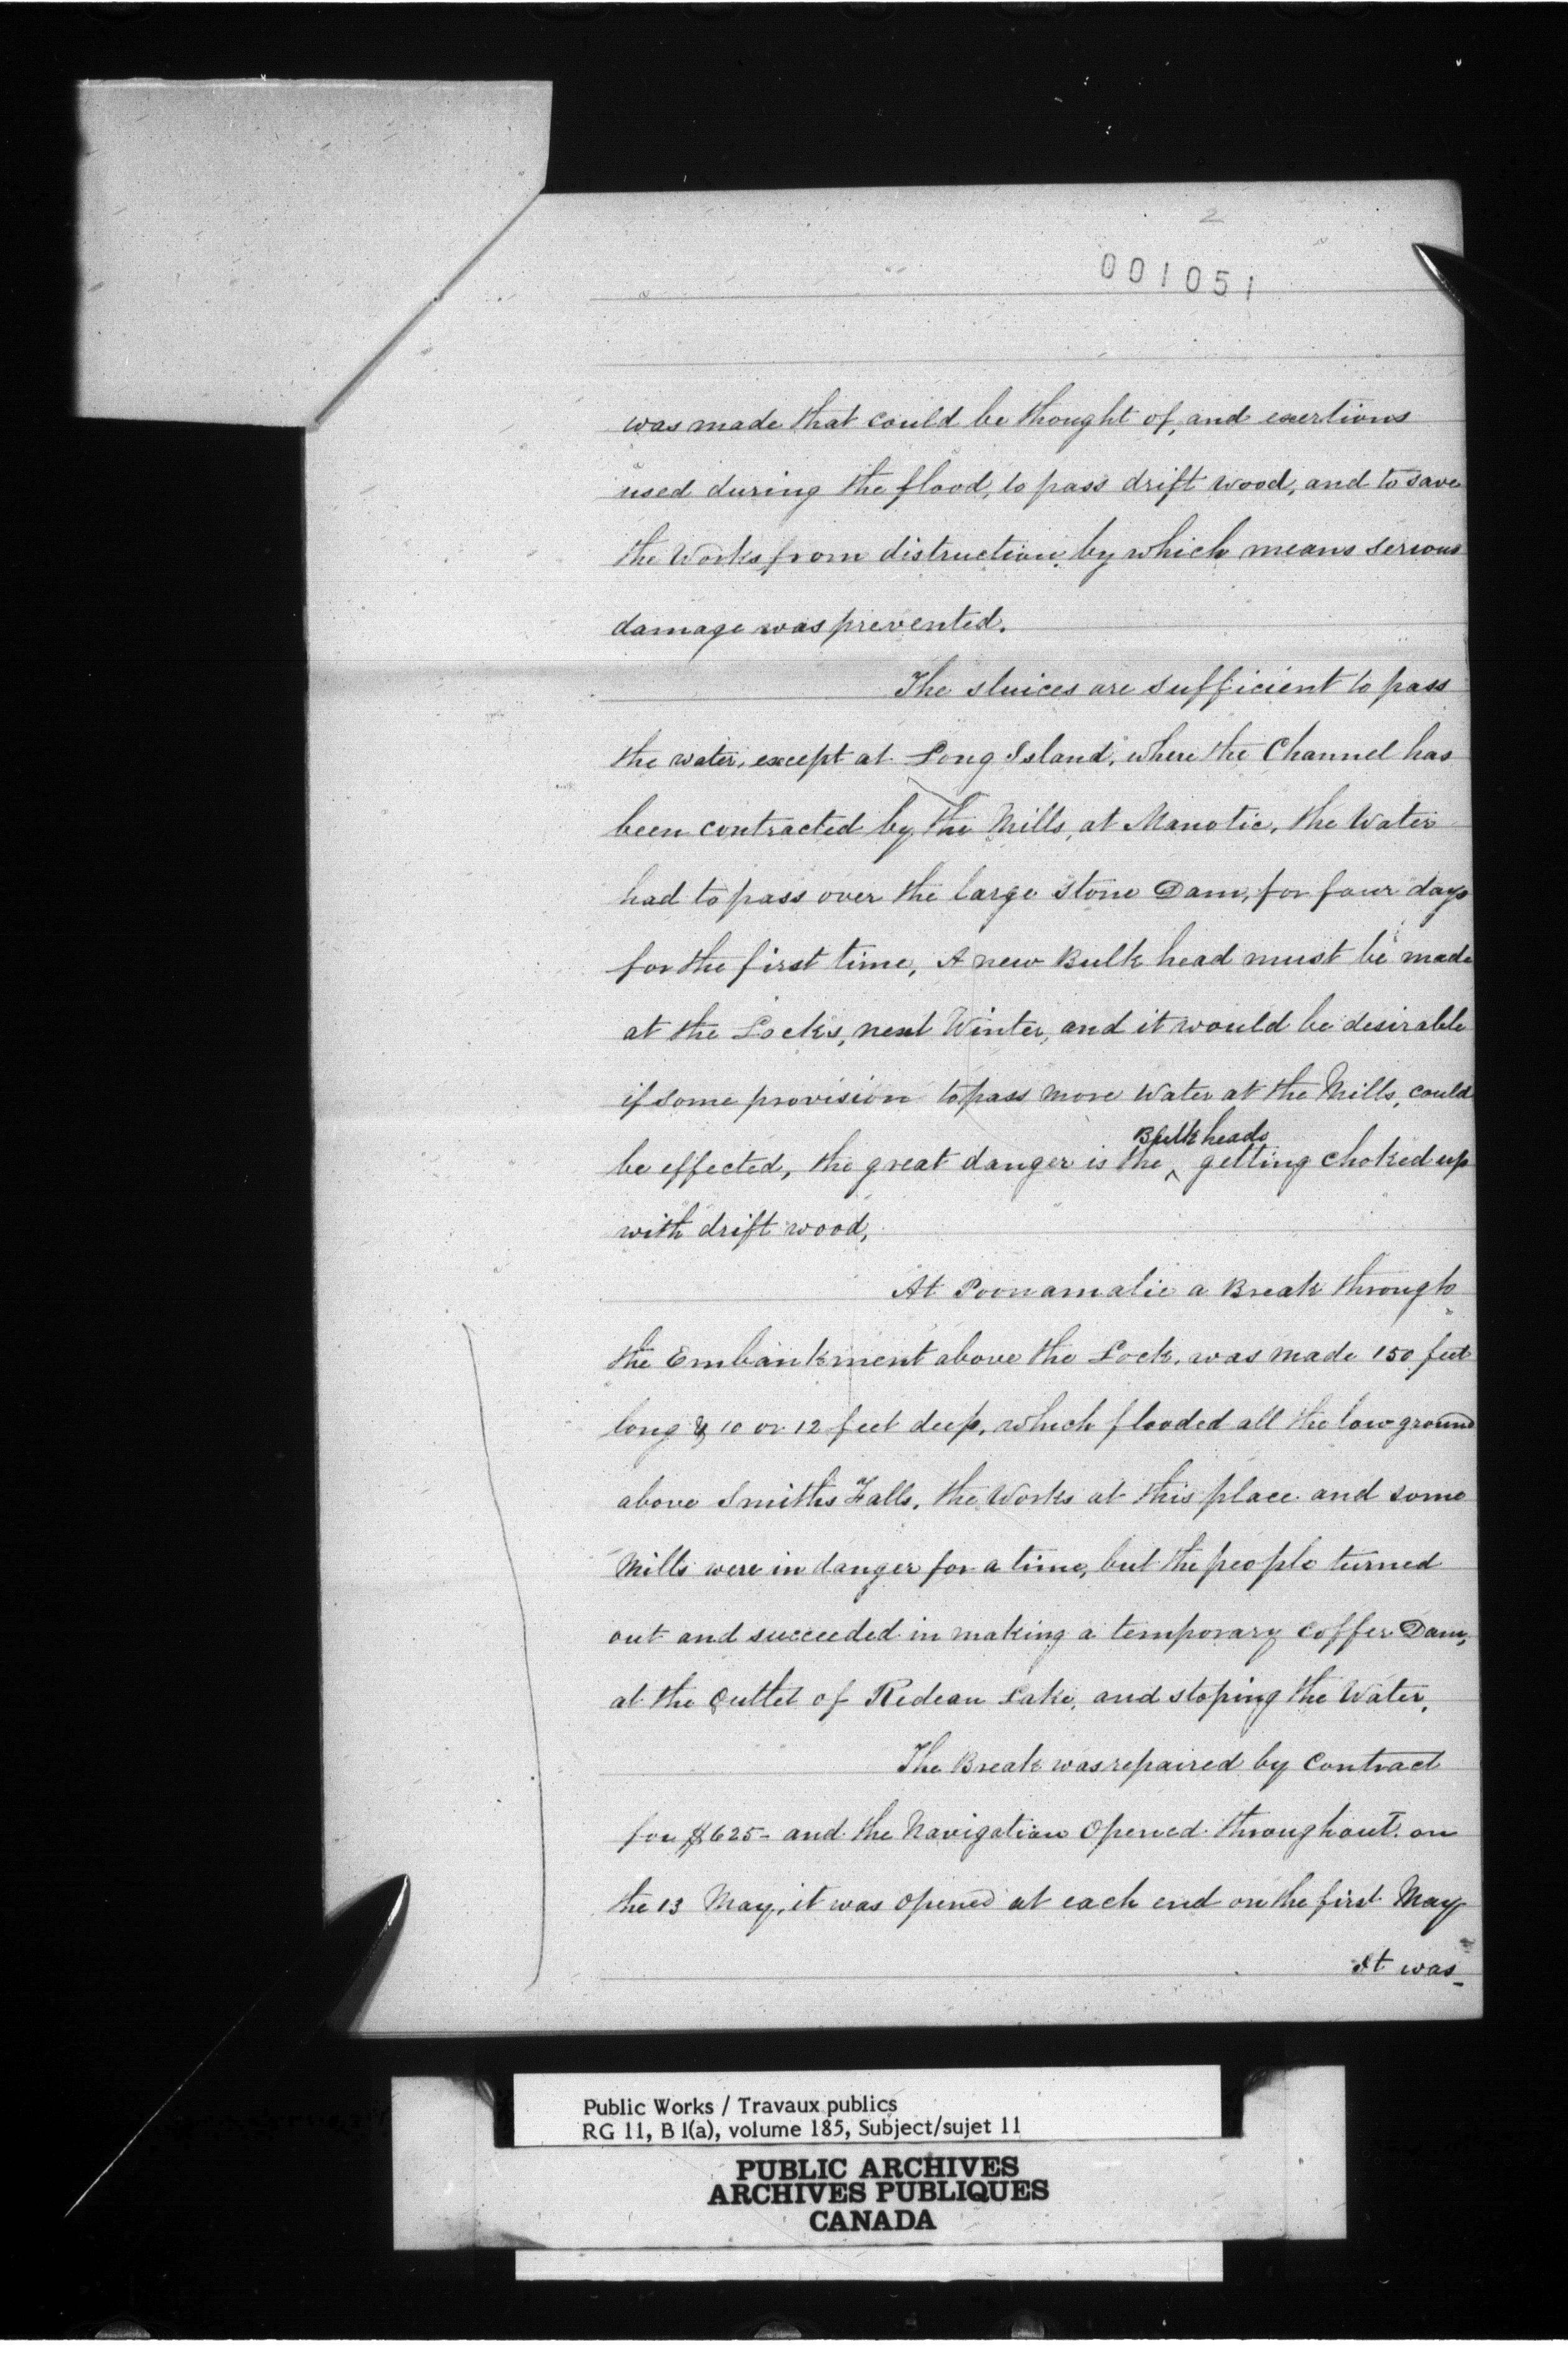 2
001051
was made that could be thought of, and exertions
used during the flood, to pass drift wood, and to save
the Works from distruction, by which means serious
damage was prevented.
The sluices are sufficient to pass
the water, except at Long Island, where the Channel has
been contracted by the Mills, at Manotic, the Water
had to pass over the large stone Dam, for four days
for the first time, A new Bulk head must be made
at the Locks, next Winter, and it would be desirable
if some provision to pass more Water at the Mills, could
Bulk heads
be effected, the great danger is the ^ getting choked up
with drift wood,
At Poonamalie a Break through
the Embankment above the Lock, was made 150 feet
long & 10 or 12 feet deep, which flooded all the low ground
above Smiths Falls, the Works at this place and some
Mills were in danger for a time, but the people turned
out and succeeded in making a temporary Coffer Dam,
at the Outlet of Redeau Lake, and stoping the Water.
The Break was repaired by Contract
for $625- and the Navigation Opened throughout on
the 13 May, it was opened at each end on the first May
It was
Public Works / Travaux publics
RG 11, B 1(a), volume 185, Subject/sujet 11
PUBLIC ARCHIVES
ARCHIVES PUBLIQUES
CANADA